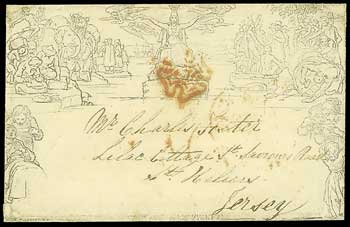 Mr Charles Foster
Lilac Cottage St. Saviours Road
St. Heliers
Jersey